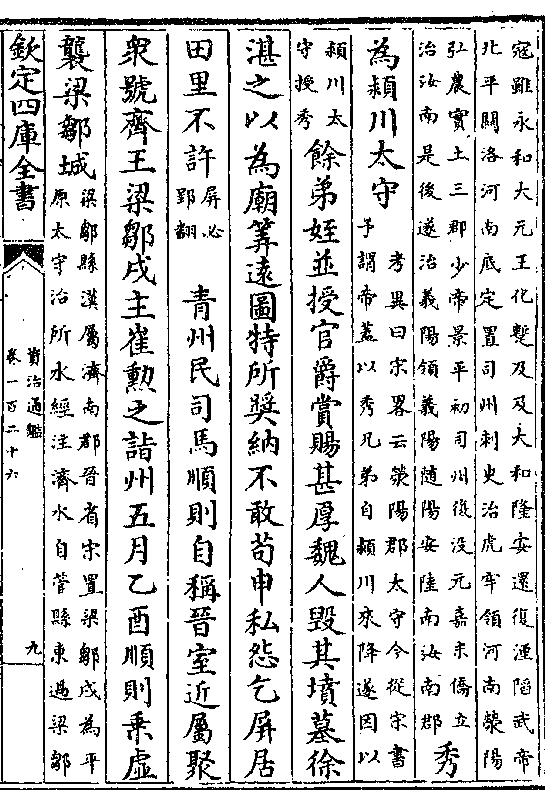 寇雖永和大元王化蹔及及太和隆安還復湮陷武帝
北平關洛河南底定置司州刺史治虎牢領河南滎陽
弘農實土三郡少帝景平初司州復没元嘉末僑立
治汝南是後遂治義陽領義陽隨陽安陸南汝南郡
秀
為潁川太守
考異曰宋畧云滎陽郡太守今從宋書
予謂帝蓋以秀兄弟自潁川來降遂因以
潁川太
守授秀
餘弟姪並授官爵賞賜甚厚魏人毁其墳墓徐
湛之以為廟筭遠圖特所奨納不敢苟申私怨乞屏居
田里不許
屏必
郢翻
青州民司馬順則自稱晉室近屬聚
衆號齊王梁鄒戍主崔勲之詣州五月乙酉順則乗虚
襲梁鄒城
梁鄒縣漢屬濟南郡晉省宋置梁鄒戍為平
原太守治所水經注濟水自菅縣東過梁鄒
欽定四庫全書
資治通鑑
卷一百二十六
九